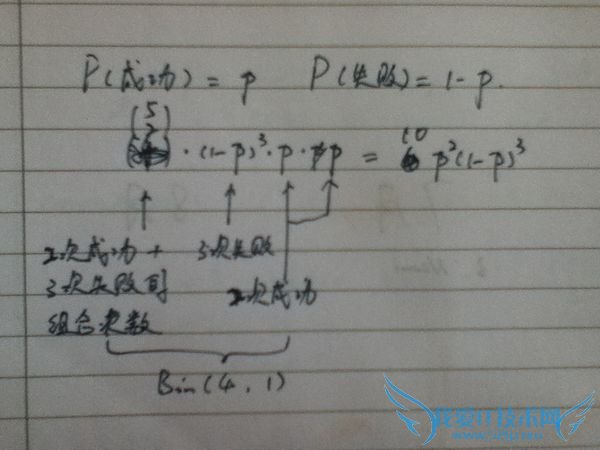 P(成功) = p    P(失败) = 1-p.
(5 2) · (1-p)³ · p · p = 10 p²(1-p)³
2次成功 +    3次失败
3次失败的    2次成功
组合次数
Bin(4,1)